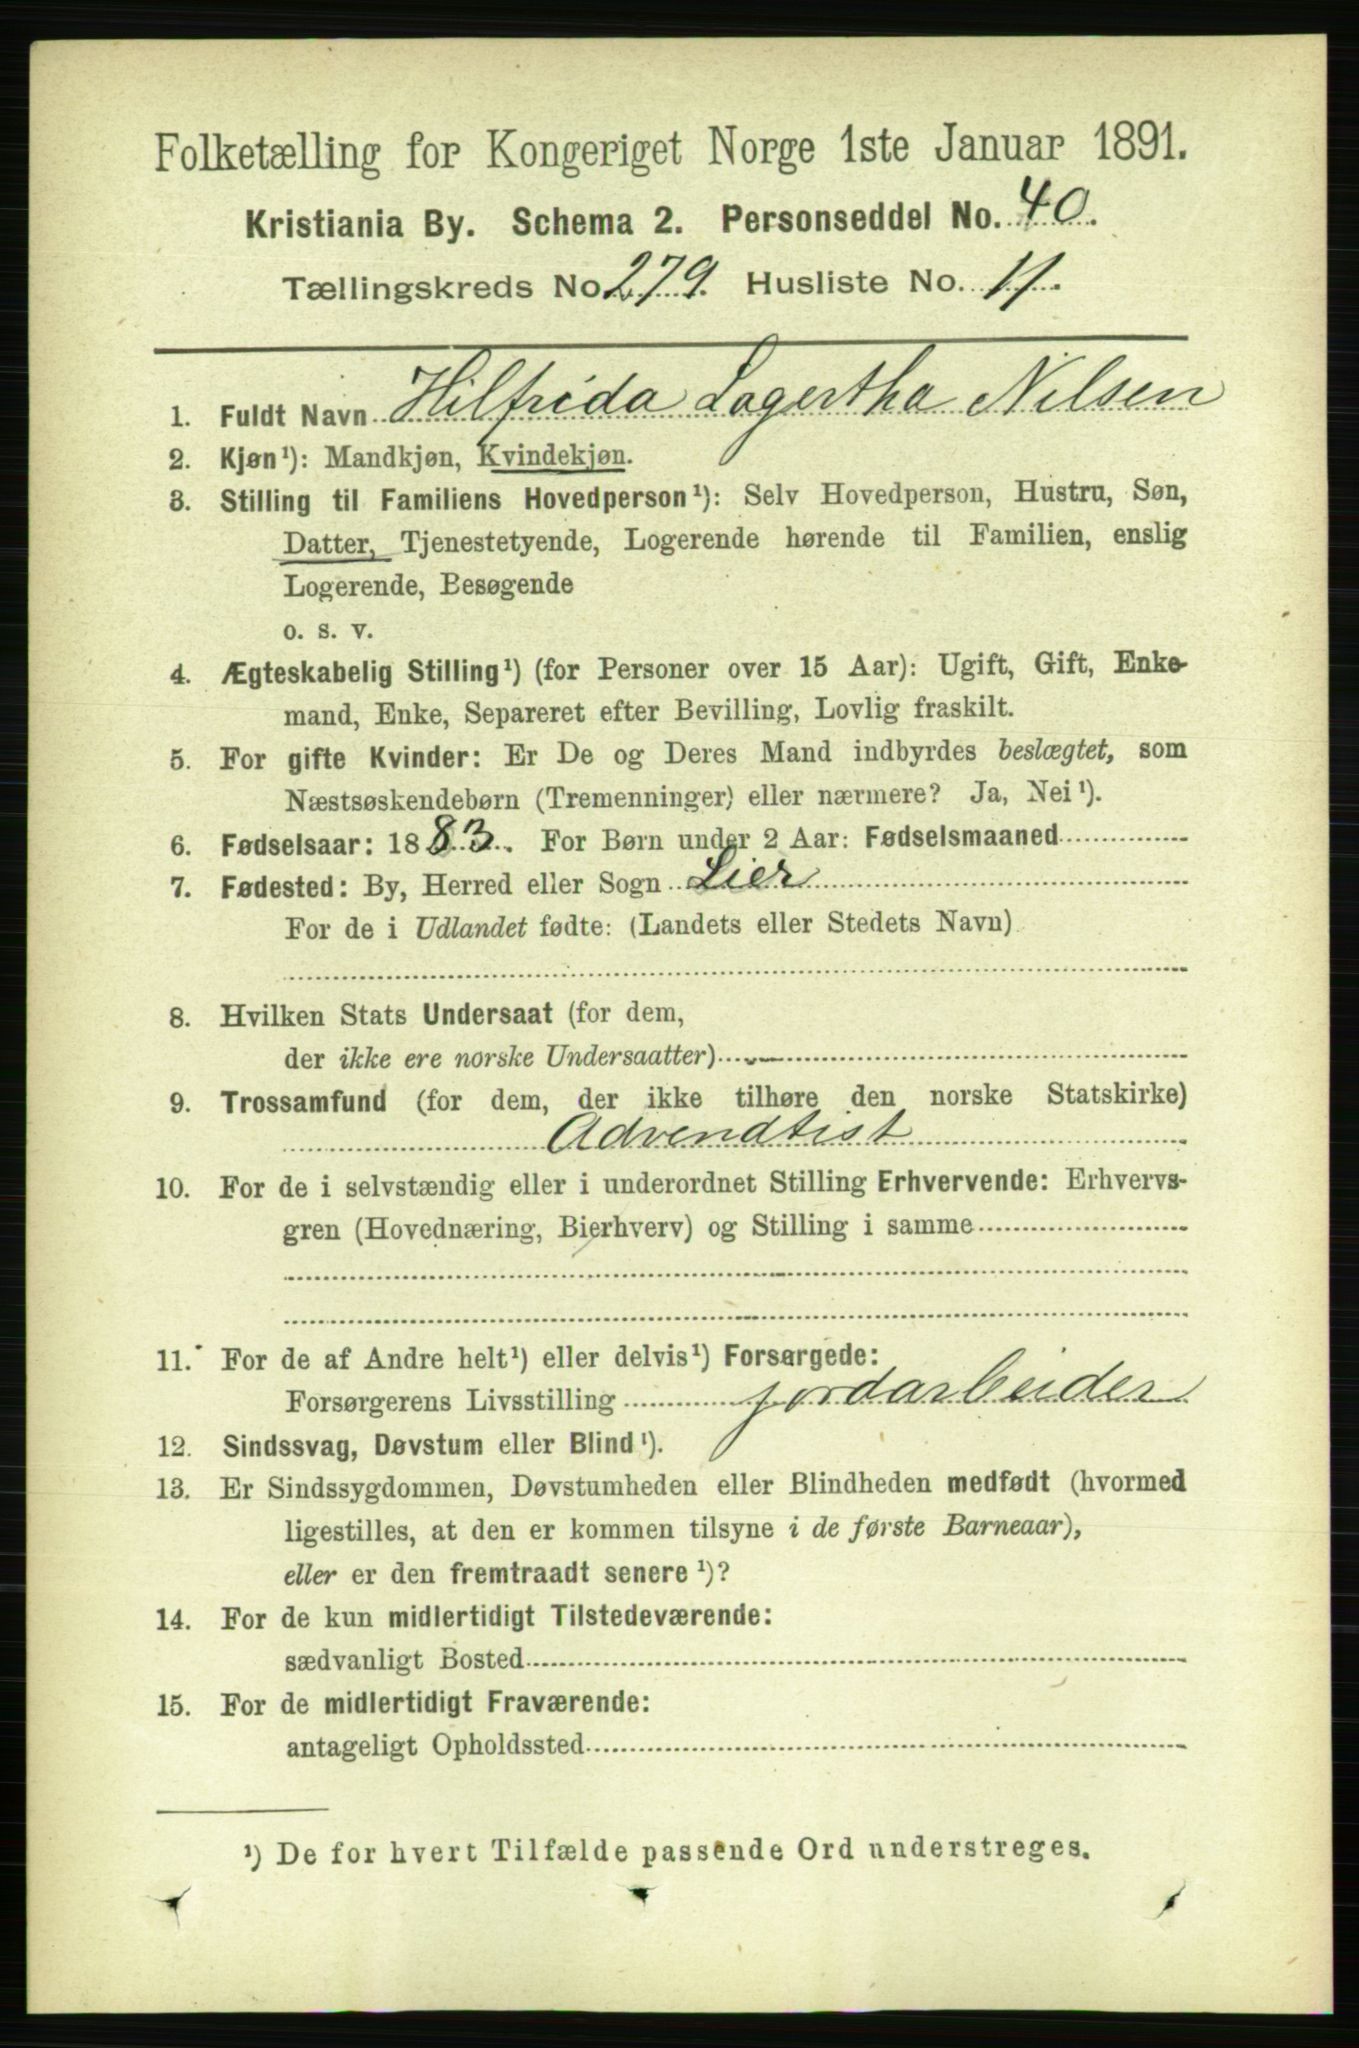 Folketælling for Kongeriget Norge 1ste Januar 1891.
Kristiania By. Schema 2. Personseddel No. 40.
Tællingskreds No. 279. Husliste No. 11.
1. Fuldt Navn Hilfrida Lagertha Nilsen
2. Kjøn¹): Mandkjøn, Kvindekjøn.
3. Stilling til Familiens Hovedperson¹): Selv Hovedperson, Hustru, Søn,
Datter, Tjenestetyende, Logerende hørende til Familien, enslig
Logerende, Besøgende
o. s. v.
4. Ægteskabelig Stilling¹) (for Personer over 15 Aar): Ugift, Gift, Enke-
mand, Enke, Separeret efter Bevilling, Lovlig fraskilt.
5. For gifte Kvinder: Er De og Deres Mand indbyrdes beslægtet, som
Næstsøskendebørn (Tremenninger) eller nærmere? Ja, Nei¹).
6. Fødselsaar: 1883. For Børn under 2 Aar: Fødselsmaaned
7. Fødested: By, Herred eller Sogn Lier
For de i Udlandet fødte: (Landets eller Stedets Navn)
8. Hvilken Stats Undersaat (for dem,
der ikke ere norske Undersaatter)
9. Trossamfund (for dem, der ikke tilhøre den norske Statskirke)
Advendtist
10. For de i selvstændig eller i underordnet Stilling Erhvervende: Erhvervs-
gren (Hovednæring, Bierhverv) og Stilling i samme
11. For de af Andre helt¹) eller delvis¹) Forsørgede:
Forsørgerens Livsstilling jordarbeider
12. Sindssvag, Døvstum eller Blind¹).
13. Er Sindssygdommen, Døvstumheden eller Blindheden medfødt (hvormed
ligestilles, at den er kommen tilsyne i de første Barneaar),
eller er den fremtraadt senere¹)?
14. For de kun midlertidigt Tilstedeværende:
sædvanligt Bosted
15. For de midlertidigt Fraværende:
antageligt Opholdssted
¹) De for hvert Tilfælde passende Ord understreges.